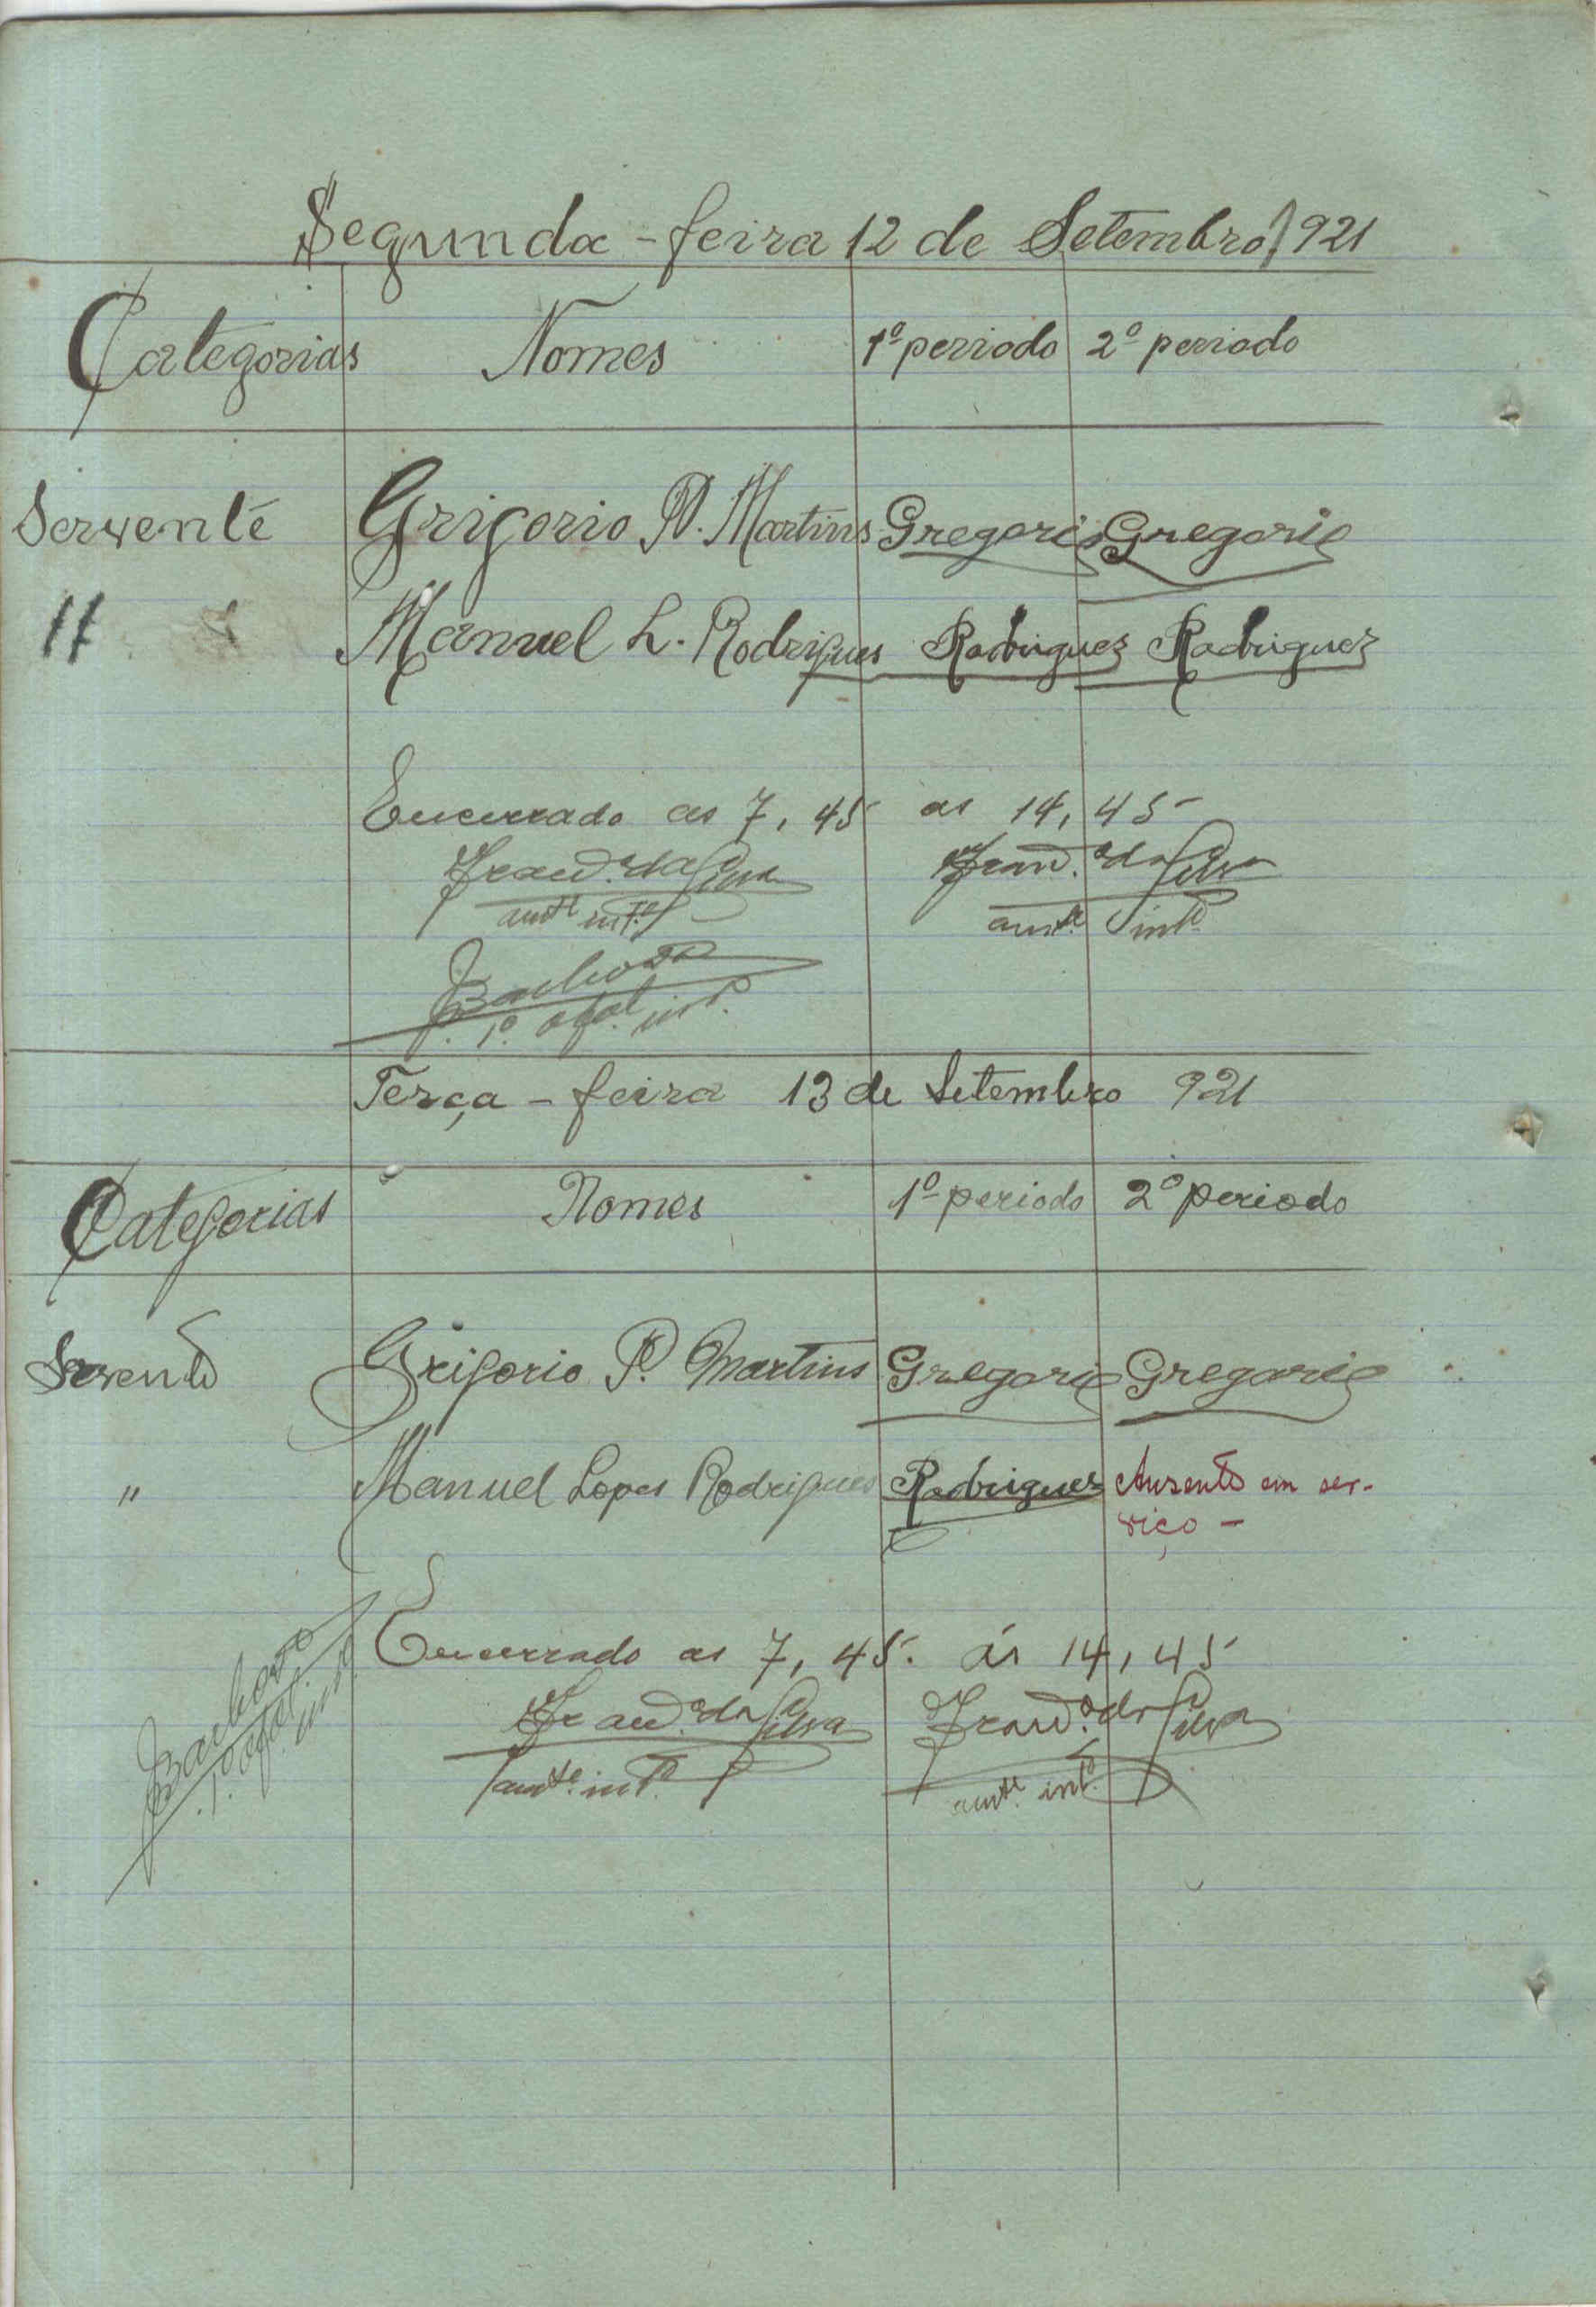 Segunda-feira 12 de Setembro/921
Categorias Nomes 1º periodo 2º periodo
Servente Grigorio P. Martins Gregorio Gregorio
" Manuel L. Rodrigues Rodriguez Rodriguez
Encerrado as 7,45 as 14,45
Franc.º da Silva Franc.º da Silva
amte. int.º amte. int.º
Barbosa
1º ofal. int.º
Terça-feira 13 de Setembro 921
Categorias Nomes 1º periodo 2º periodo
Servente Grigorio P. Martins Gregorio Gregorio
" Manuel Lopes Rodrigues Rodriguez Ausente em ser-
viço -
Encerrado as 7,45. ás 14,45
Franc.º da Silva Franc.º da Silva
amte. int.º amte. int.º
Barbosa
1º ofal. int.º